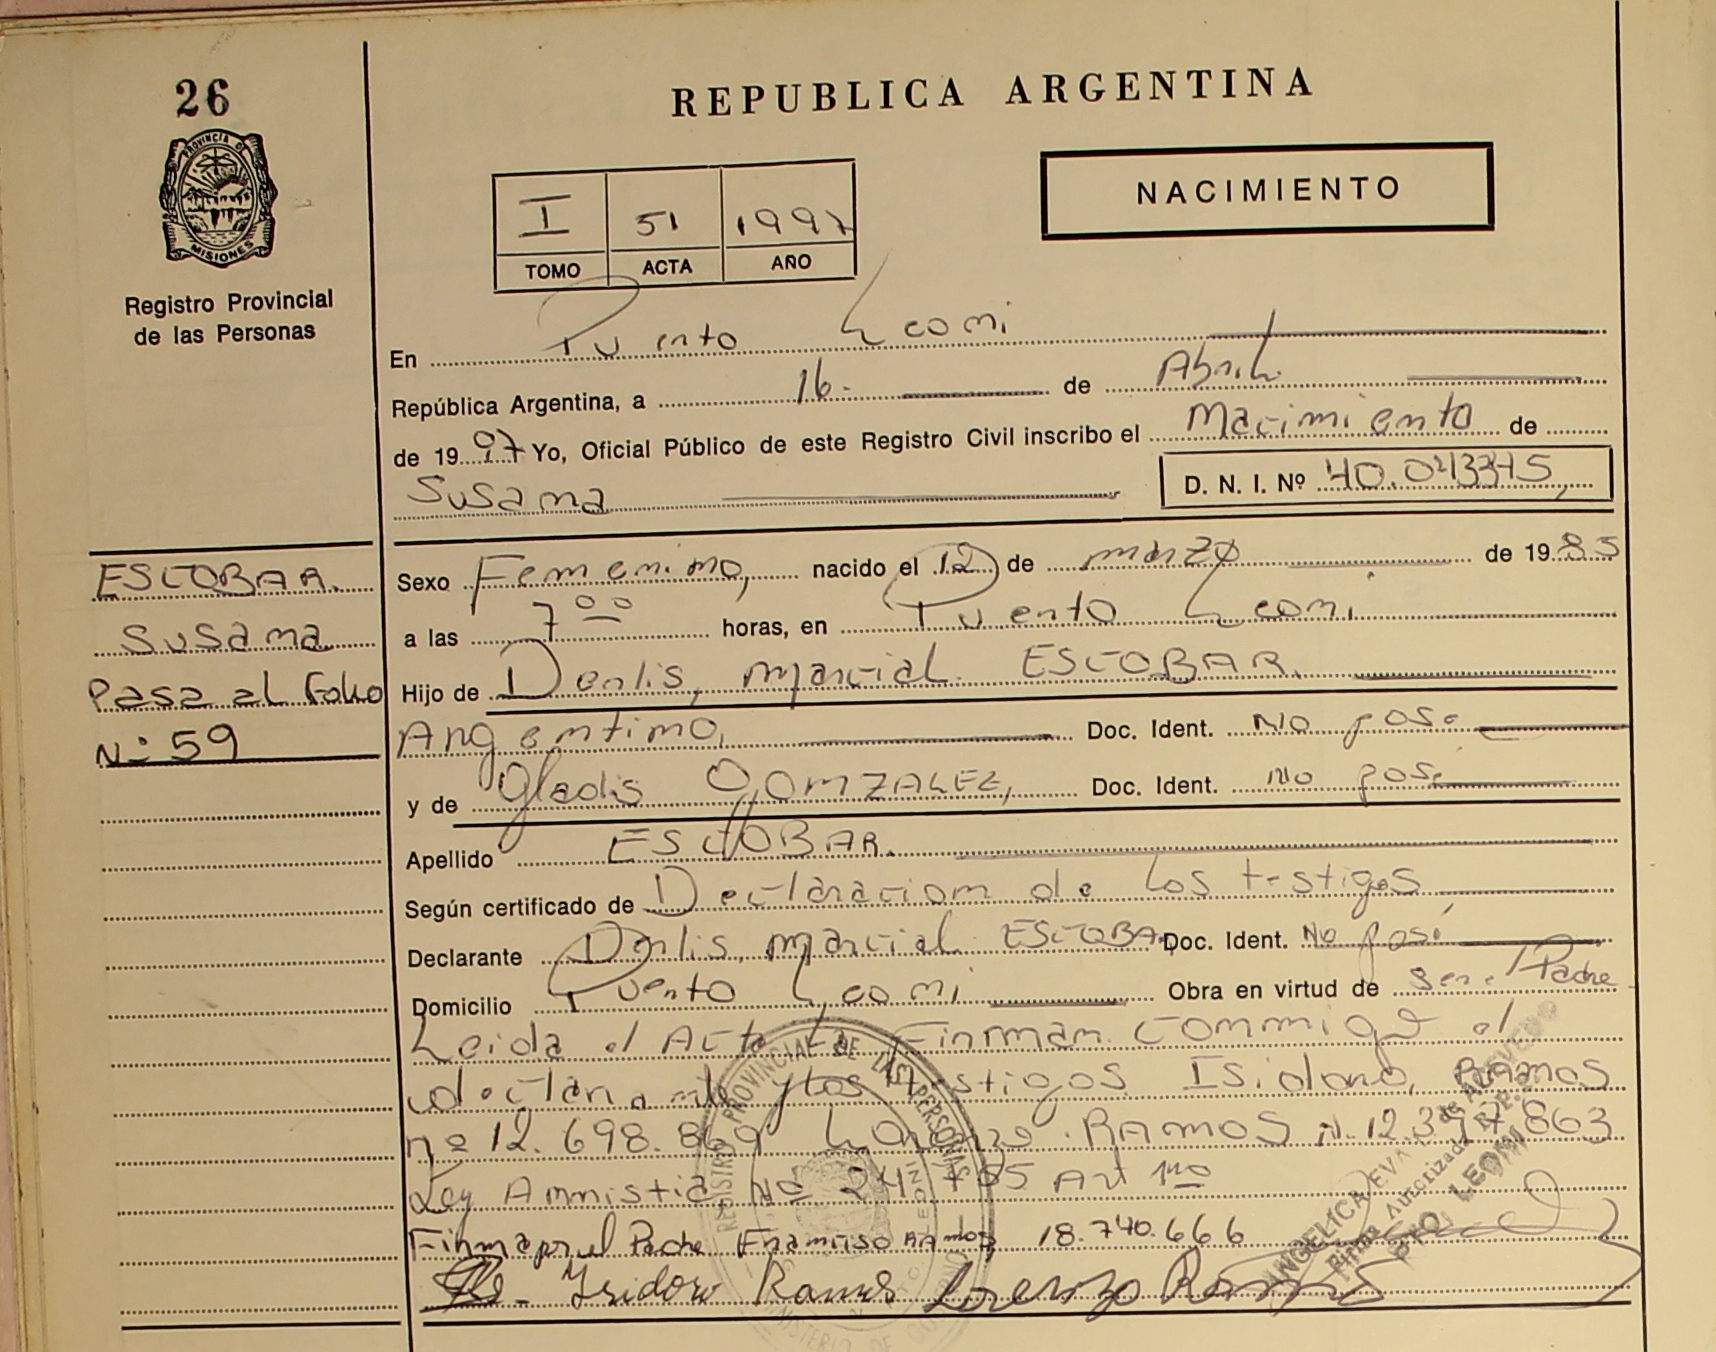 26
REPUBLICA ARGENTINA
PROVINCIA DE MISIONES
Registro Provincial
de las Personas
I 51 1997
TOMO ACTA AÑO
NACIMIENTO
En Puerto Leoni
República Argentina, a 16 de Abril
de 1997 Yo, Oficial Público de este Registro Civil inscribo el Nacimiento de
Susana
D. N. I. Nº
ESCOBAR.
Susana
Pasa al Folio
Nº 59
Sexo Femenino, nacido el 12 de marzo de 1985
a las 7 00 horas, en Puerto Leoni
Hijo de Derlis, marcial ESCOBAR.
Argentino, Doc. Ident. No posé
y de Gladis GONZALEZ, Doc. Ident. No posé
Apellido ESCOBAR.
Según certificado de Declaracion de Los testigos
Declarante Derlis, marcial ESCOBAR Doc. Ident. No posé
Domicilio Puerto Leoni Obra en virtud de ser el Padre
Leida el Acta La Firman conmigo el
declarante y los testigos Isidoro, RAMOS
nº 12.698.869 Lorenzo RAMOS N. 12.397.863
Ley Amnistia Nº 24.755 Art 1ro
Firma por el Padre Francisco Ramos 18.740.666
Isidoro Ramos Lorenzo Ramos
REGISTRO PROVINCIAL DE LAS PERSONAS
ANGELICA EVA de ACEVEDO
Firma Autorizada R.P.
PTO. LEONI